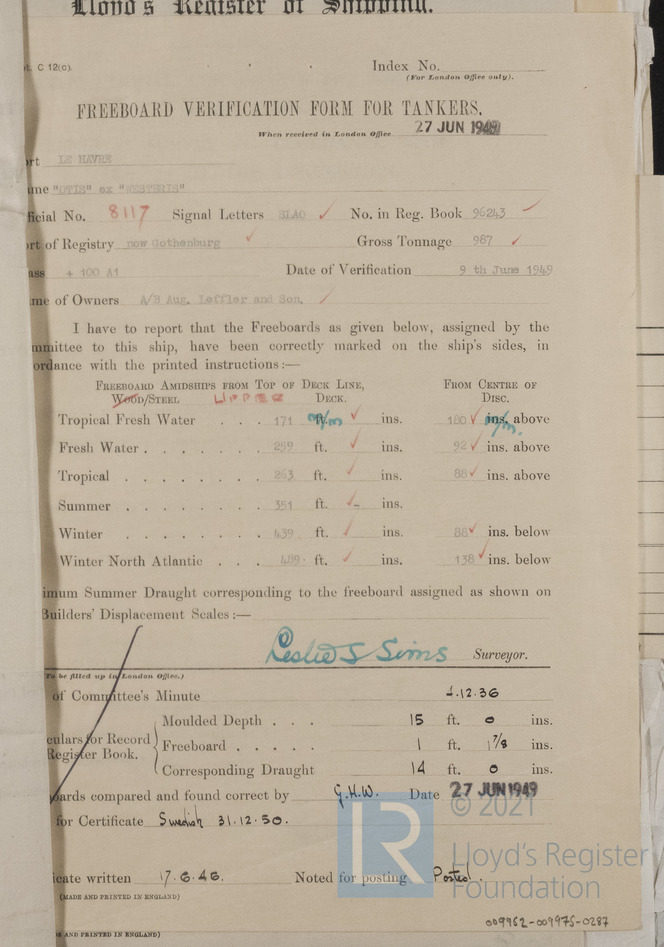 Lloyd's Register of Shipping.
C 12(c).
Index No.
(For London Office only).
FREEBOARD VERIFICATION FORM FOR TANKERS.
When received in London Office 27 JUN 1949
rt LE HAVRE
me "OTIS" ex "WESTERIS"
ficial No. 8117 Signal Letters SLAO No. in Reg. Book 96243
rt of Registry now Gothenburg Gross Tonnage 987
ass + 100 A1 Date of Verification 9 th June 1949
me of Owners A/B Aug. Leffler and Son.
I have to report that the Freeboards as given below, assigned by the
mmittee to this ship, have been correctly marked on the ship's sides, in
ordance with the printed instructions:—
FREEBOARD AMIDSHIPS FROM TOP OF DECK LINE, FROM CENTRE OF
WOOD/STEEL UPPER DECK. DISC.
Tropical Fresh Water . . . 171 ft. m/m ins. 180 ins. m/m. above
Fresh Water . . . . . . . 259 ft. ins. 92 ins. above
Tropical . . . . . . . . 263 ft. ins. 88 ins. above
Summer . . . . . . . . 351 ft. ins.
Winter . . . . . . . . 439 ft. ins. 88 ins. below
Winter North Atlantic . . . 489 ft. ins. 138 ins. below
imum Summer Draught corresponding to the freeboard assigned as shown on
Builders' Displacement Scales :—
Leslie S Sims Surveyor.
To be filled up in London Office.)
of Committee's Minute 1.12.36
Moulded Depth . . . 15 ft. 0 ins.
culars for Record Freeboard . . . . . 1 ft. 1 7/8 ins.
Register Book.
Corresponding Draught 14 ft. 0 ins.
oards compared and found correct by G.H.W. Date 27 JUN 1949
for Certificate Swedish 31.12.50.
icate written 17.6.46. Noted for posting Posted.
(MADE AND PRINTED IN ENGLAND)
© 2021
Lloyd's Register
Foundation
009962-009975-0287
AND PRINTED IN ENGLAND)